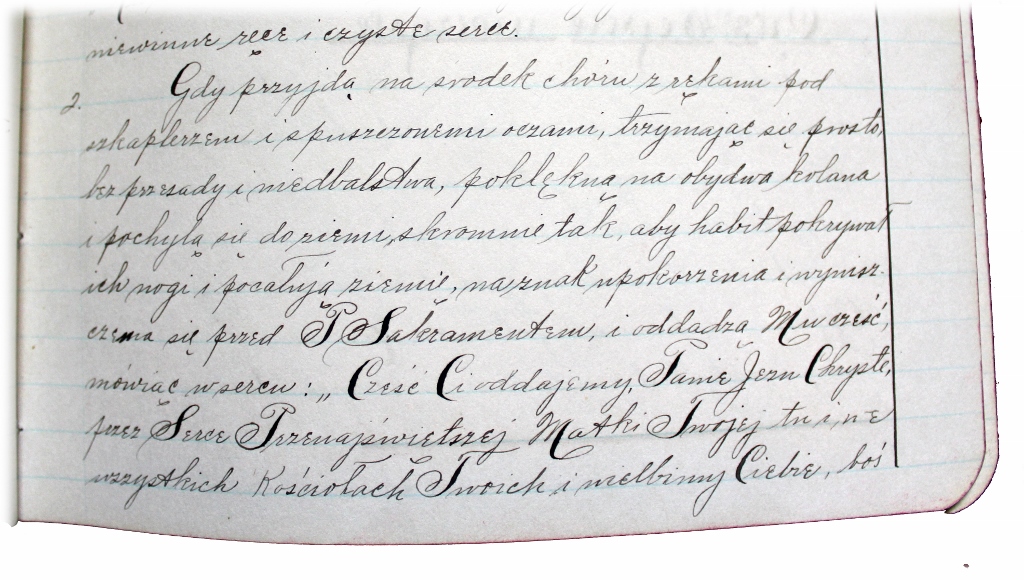 niewinne ręce i czyste serce.
2. Gdy przyjdą na środek chóru z rękami pod
szkaplerzem i spuszczonemi oczami, trzymając się prosto,
bez przesady i niedbalstwa, poklękną na obydwa kolana
i pochylą się do ziemi, skromnie tak, aby habit pokrywał
ich nogi i pocałują ziemię, na znak upokorzenia i wynisz-
czenia się przed P. Sakramentem, i oddadzą Mu cześć,
mówiąc w sercu: „Cześć Ci oddajemy, Panie Jezu Chryste,
przez Serce Przenajświętszej Matki Twojej tu i, we
wszystkich Kościołach Twoich i wielbimy Ciebie, boś